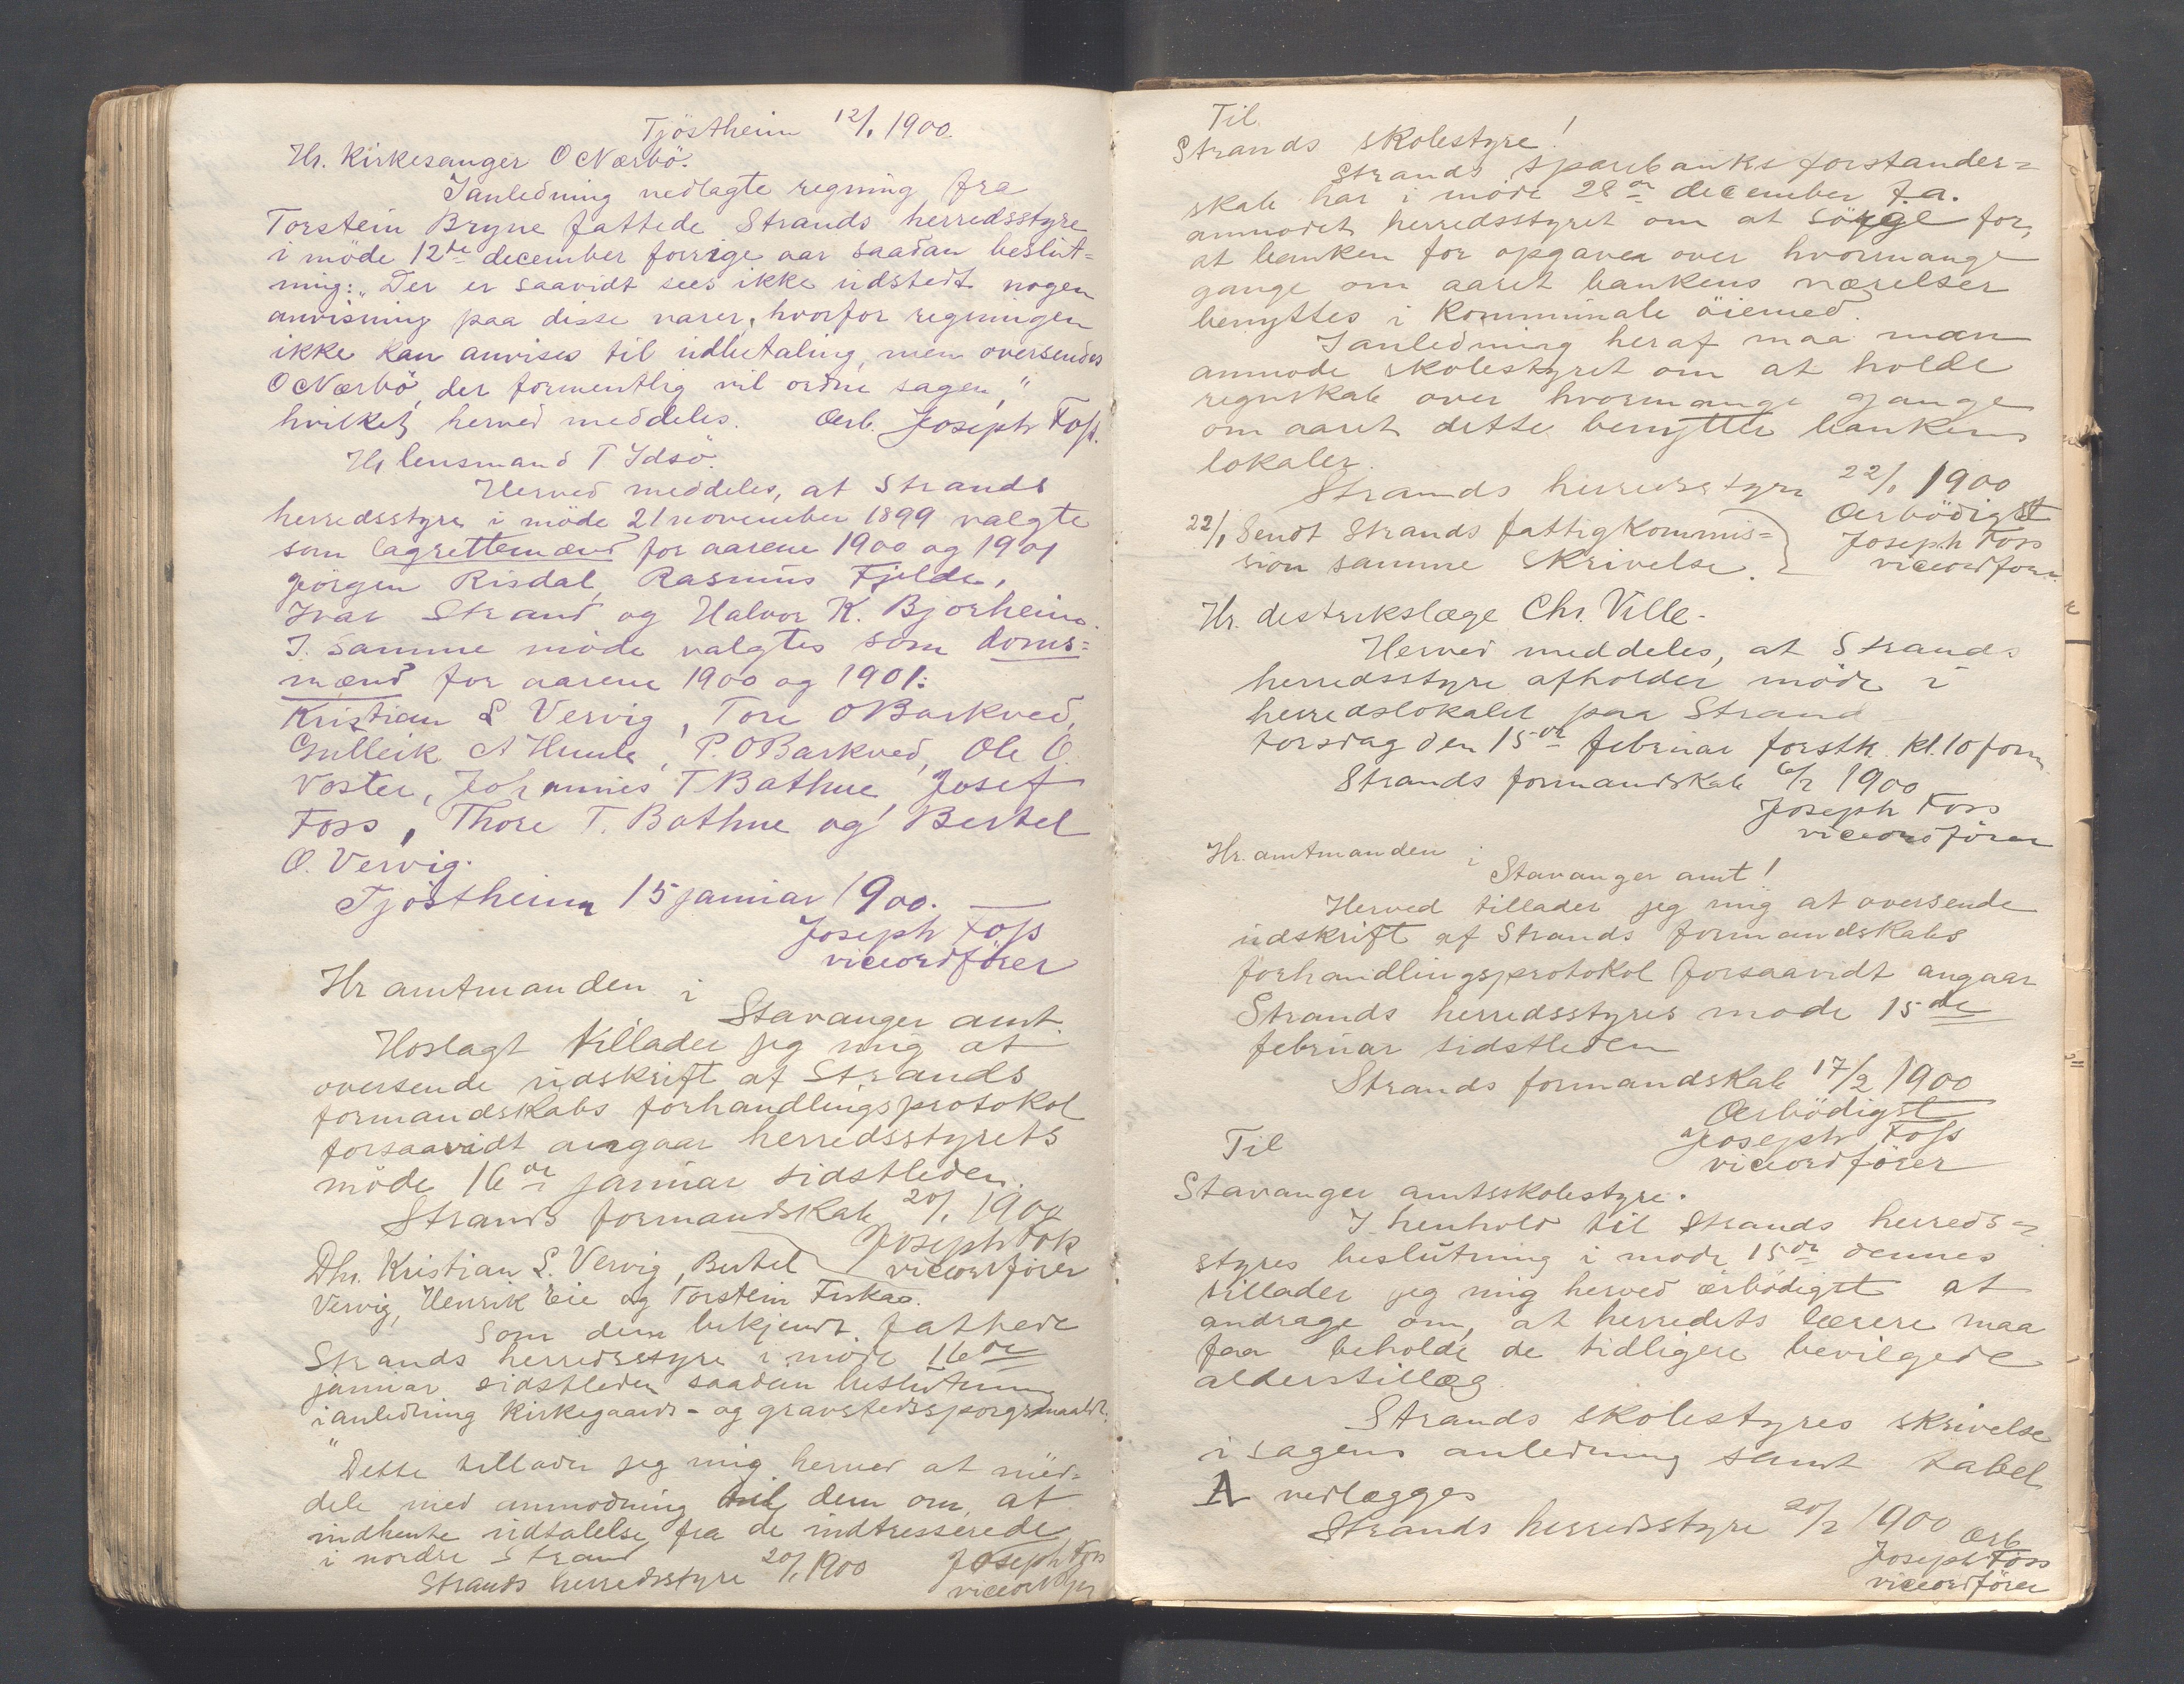 Tjöstheim 12/1 1900.
Hr. Kirkesanger O Nærbö.
Ianledning vedlagte regning fra
Torstein Bryne fattede Strands herredsstyre
i möde 12te december forrige aar saadan beslut=
ning: "Der er saavidt sees ikke udstedt nogen
anvisning paa disse varer, hvorfor regningen
ikke kan anvises til udbetaling, men oversendes
O Nærbö, der formentlig vil ordne sagen,"
hvilket herved meddeles. Ærb. Joseph Foss.
Hr lensmand T Idsö.
Herved meddeles, at Strands
herredsstyre i möde 21 november 1899 valgte
som lagrettemænd for aarene 1900 og 1901
Jörgen Risdal, Rasmus Fjelde,
Ivar Strand og Halvor K. Bjorheim.
I samme möde valgtes som doms=
mænd for aarene 1900 og 1901:
Kristian L Vervig, Tore O Barkved,
Gulleik A Humle, P. O Barkved, Ole O.
Voster, Johannes T Bathne, Josef
Foss, Thore T. Bathne og Bertel
O. Vervig.
Tjöstheim 15 januar 1900.
Joseph Foss
viceordförer
Hr amtmanden i
Stavanger amt.
Hoslagt tillader jeg mig at
oversende udskrift af Strands
formandskabs forhandlingsprotokol
forsaavidt angaar herredsstyrets
möde 16de januar sidstleden.
Strands formandskab 20/1 1900
Joseph Foss
viceordförer
Dhr. Kristian L. Vervig, Bertel
Vervig, Henrik Eie og Torstein Fiskaa.
Som dem bekjendt fattede
Strands herredsstyre i möde 16de
januar sidstleden saadan beslutning
i anledning Kirkegaards- og gravstedsspörgsmaalet.
"
Dette tillader jeg mig herved at med=
dele med anmodning til dem om at
indhente udtalelse fra de indtresserede
i nordre Strand
Strands herredsstyre 20/1 1900 Joseph Foss
viceordfjr
Til
Strands skolestyre!
Strands sparebanks forstander=
skab har i möde 28de december f.a.
anmodet herredsstyret om at sörge for,
at banken for opgaver over hvormange
gange om aaret bankens værelser
benyttes i kommunale öiemed.
Ianledning heraf maa man
anmode skolestyret om at holde
regnskab over hvormange gange
om aaret dette benytter bankens
lokaler.
Strands herredsstyre 22/1 1900
Ærbödigst
Joseph Foss
viceordförer
22/1 Sendt Strands fattigkommis=
sion samme skrivelse.
Hr. distriktslæge Chr. Ville.
Herved meddeles, at Strands
herredsstyre afholder möde i
herredslokalet paa Strand
torsdag den 15de februar forstk. kl. 10 form
Strands formandskab 6/2 1900
Joseph Foss
viceordförer
Hr. amtmanden i
Stavanger amt!
Herved tillader jeg mig at oversende
udskrift af Strands formandskabs
forhandlingsprotokol forsaavidt angaar
Strands herredsstyres möde 15de
februar sidstleden
Strands formandskab 17/2 1900
Ærbödigst
Joseph Foss
viceordförer
Til
Stavanger amtsskolestyre.
I henhold til Strands herreds=
styres beslutning i möde 15de dennes
tillader jeg mig herved ærbödigst at
andrage om, at herredets lærere maa
faa beholde de tidligere bevilgede
alderstillæg
Strands skolestyres skrivelse
i sagens anledning samt tabel
A vedlægges
Strands herredsstyre 20/2 1900 Ærb
Joseph Foss
viceordförer